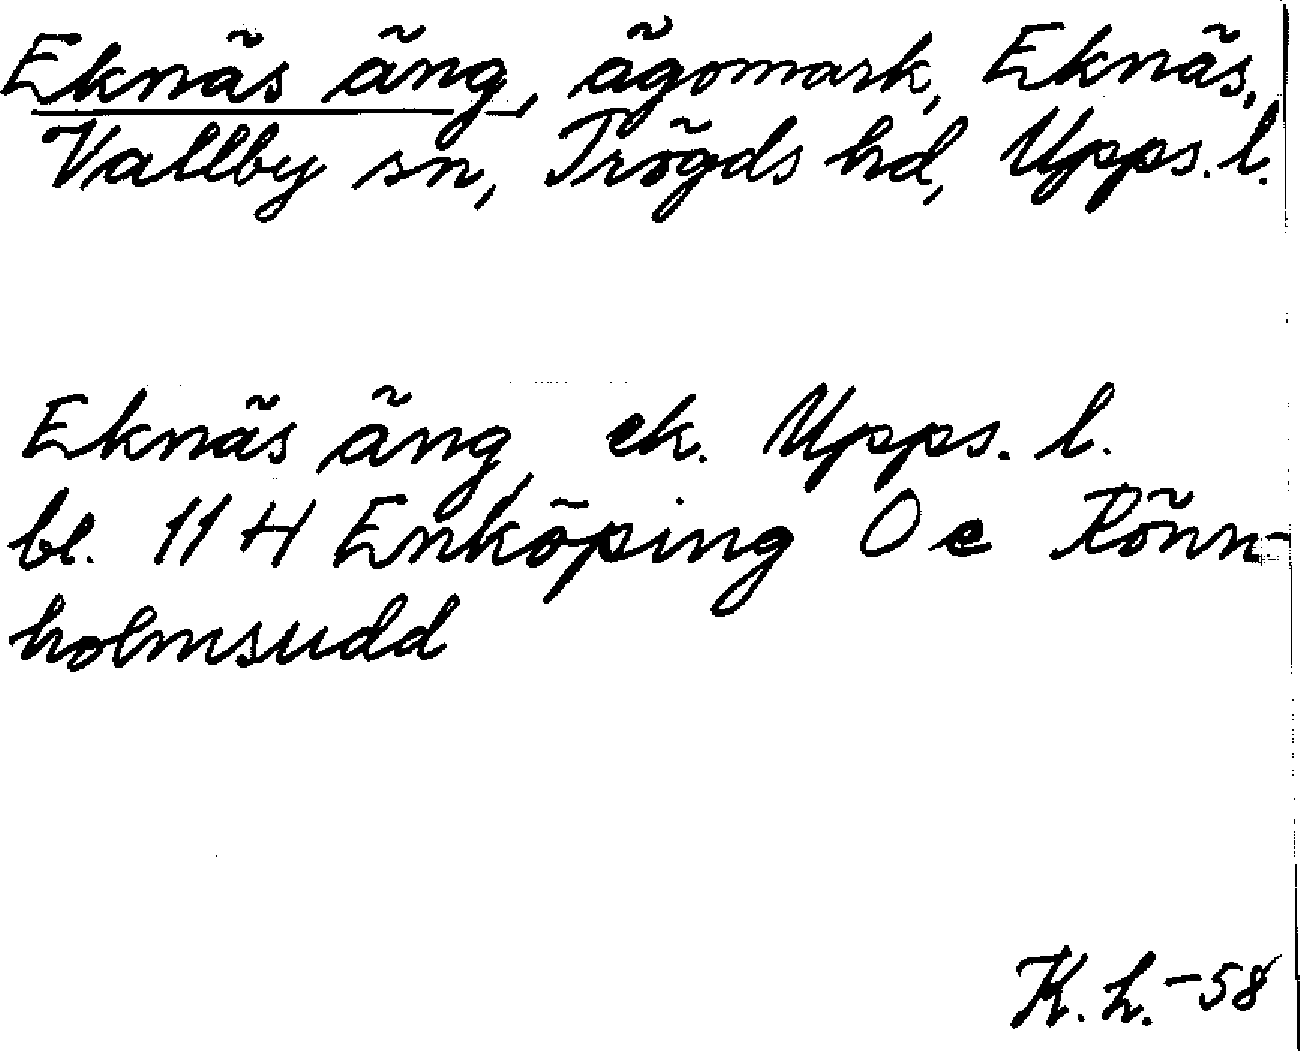 Eknäs äng, ägomark, Eknäs,
Vallby sn, Trögds hd, Upps. l.
Eknäs äng, ek. Upps. l.
bl. 11 H Enköping O e Rönn-
holmsudd
K. L. -58